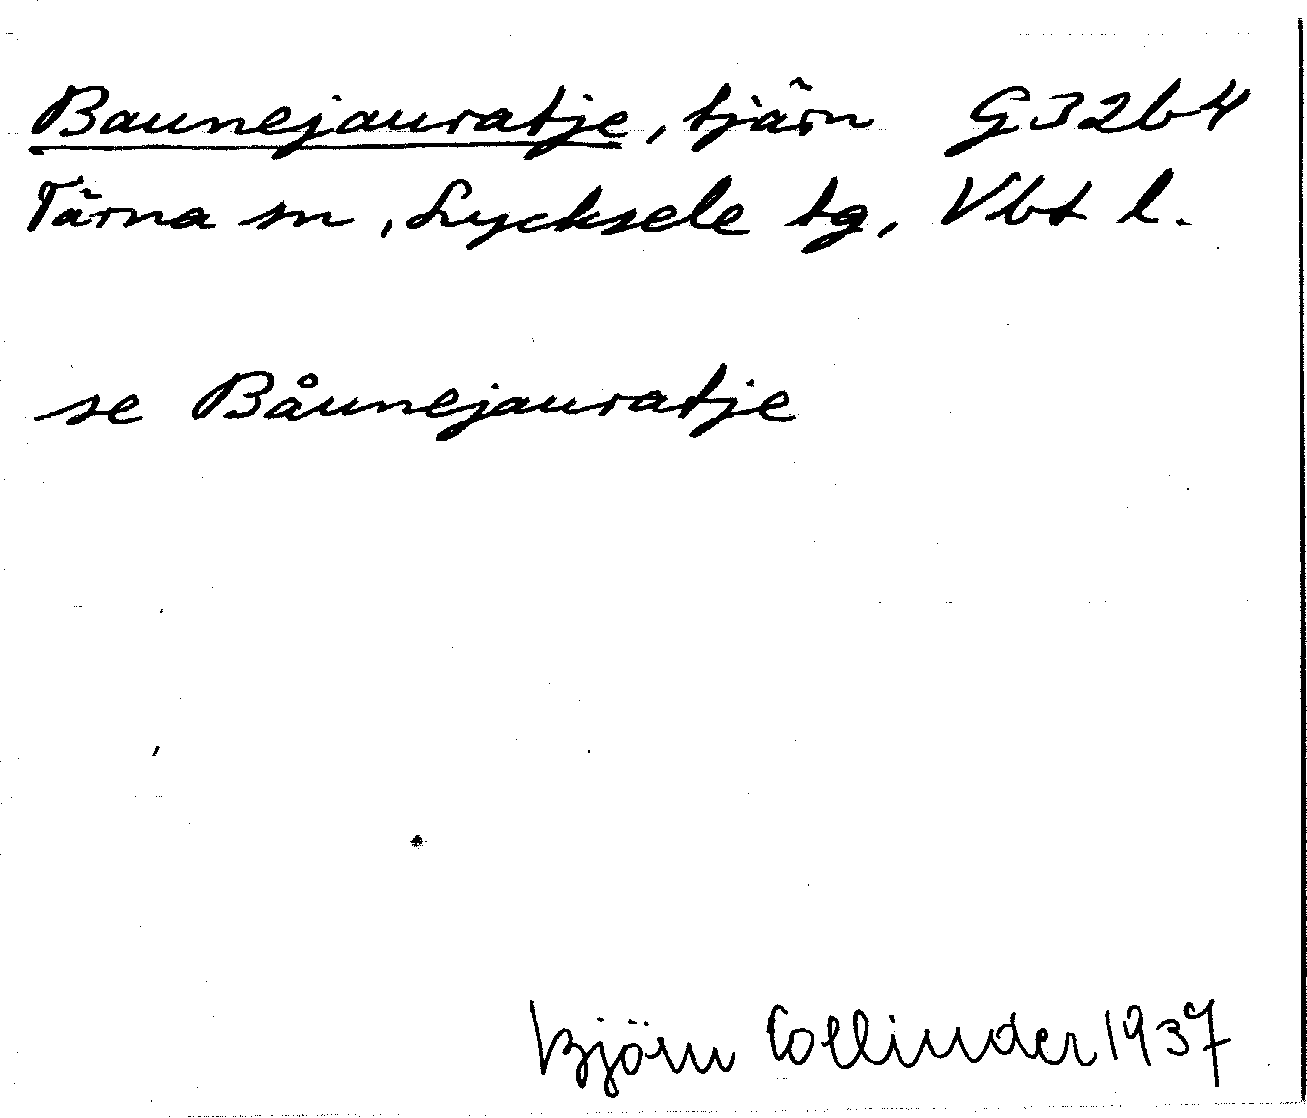 Baunejauratje, tjärn G32b4
Tärna sn, Lycksele tg, Vbt l.
se Båunejauratje
Björn Collinder 1937